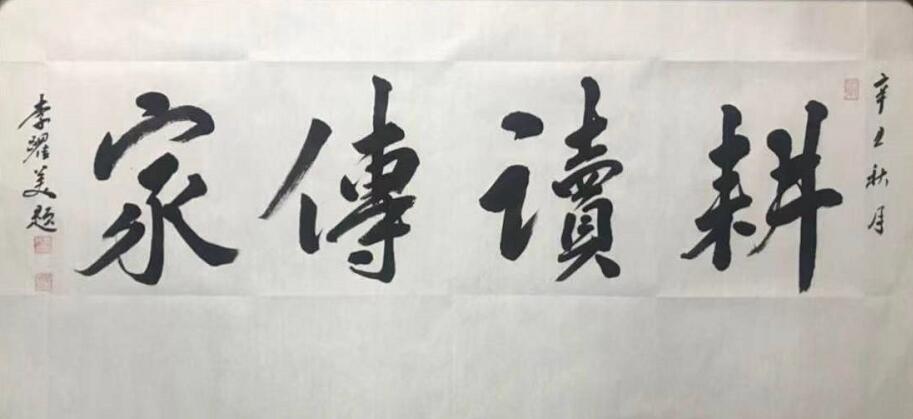 辛丑秋月
耕讀傳家
李耀美題